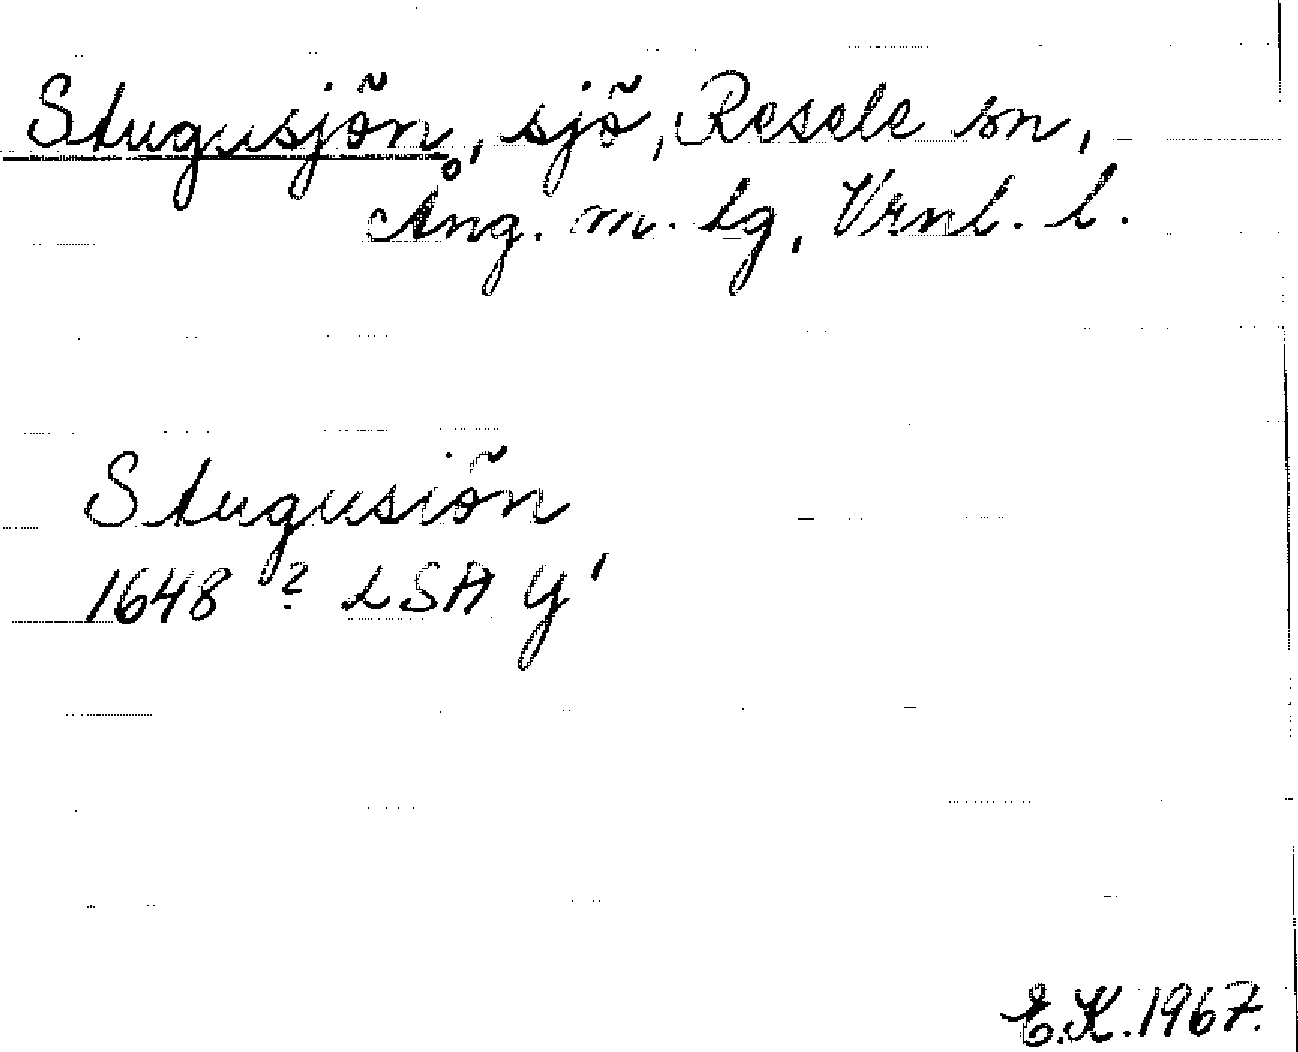 Stugusjön, sjö, Resele sn,
Ång. m. tg, Vrnl. l.
Stugusiön
1648 ? LSA Y'
E.K. 1967.